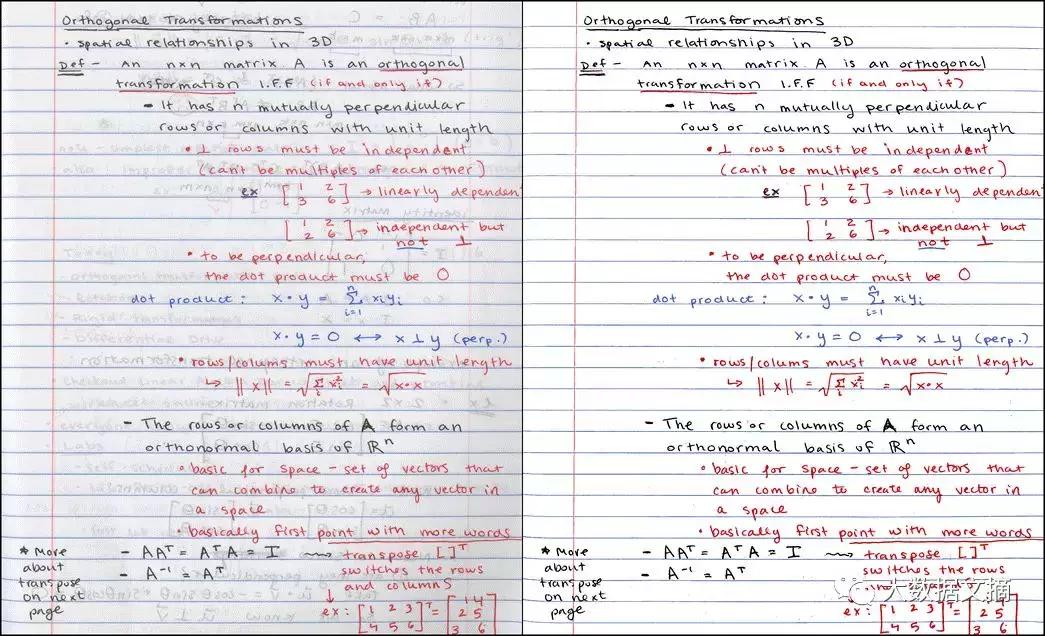 Orthogonal Transformations
• spatial relationships in 3D
Def - An n×n matrix A is an orthogonal
transformation I.F.F (if and only if)
- It has n mutually perpendicular
rows or columns with unit length
• ⊥ rows must be independent
(can't be multiples of each other)
ex [1 2 → linearly dependent
3 6]
[1 2 → independent but
2 6] not ⊥
• to be perpendicular,
the dot product must be 0
dot product: x • y = Σ xᵢyᵢ
i=1 n
x • y = 0 ↔ x ⊥ y (perp.)
• rows/colums must have unit length
↳ ||x|| = √Σ xᵢ² = √x•x
- The rows or columns of A form an
orthonormal basis of ℝⁿ
• basic for space - set of vectors that
can combine to create any vector in
a space
• basically first point with more words
* More - AAᵀ = AᵀA = I ⇝ transpose [ ]ᵀ
about - A⁻¹ = Aᵀ switches the rows
transpose and columns
on next ↓
page ex: [1 2 3 ᵀ = [1 4
4 5 6] 2 5
3 6]
Orthogonal Transformations
• spatial relationships in 3D
Def - An n×n matrix A is an orthogonal
transformation I.F.F (if and only if)
- It has n mutually perpendicular
rows or columns with unit length
• ⊥ rows must be independent
(can't be multiples of each other)
ex [1 2 → linearly dependen
3 6]
[1 2 → independent but
2 6] not ⊥
• to be perpendicular,
the dot product must be 0
dot product: x • y = Σ xᵢyᵢ
i=1 n
x • y = 0 ↔ x ⊥ y (perp.)
• rows/colums must have unit length
↳ ||x|| = √Σ xᵢ² = √x•x
- The rows or columns of A form an
orthonormal basis of ℝⁿ
• basic for space - set of vectors that
can combine to create any vector in
a space
• basically first point with more words
* More - AAᵀ = AᵀA = I ⇝ transpose [ ]ᵀ
about - A⁻¹ = Aᵀ switches the rows
transpose
on next 大数据文摘
page ex: [1 2 3 ᵀ = [1 4
4 5 6] 2 5
3 6]